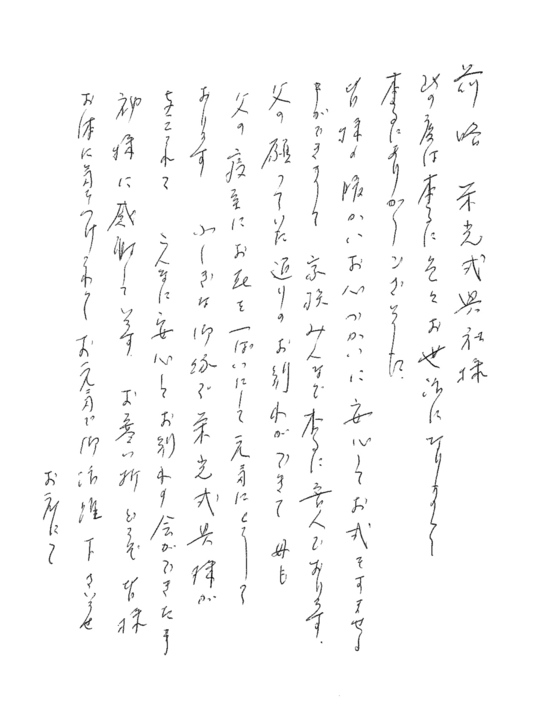 前略 栄光式典社様
この度は本当に色々お世話になりまして
本当にありがとうございました。
皆様の暖かいお心づかいに安心してお式をすませる
事ができまして 家族みんなで本当に喜んでおります。
父の願っていた通りのお別れができて 母も
父の寝室にお花を一ぱいにして元気にして
おります ふしぎな御縁で栄光式典様が
こんなに安心してお別れの会ができた事
神様に感謝して います お暑い折 どうぞ 皆様
お体に気をつけられて お元気で御活躍下さいませ
お元にて